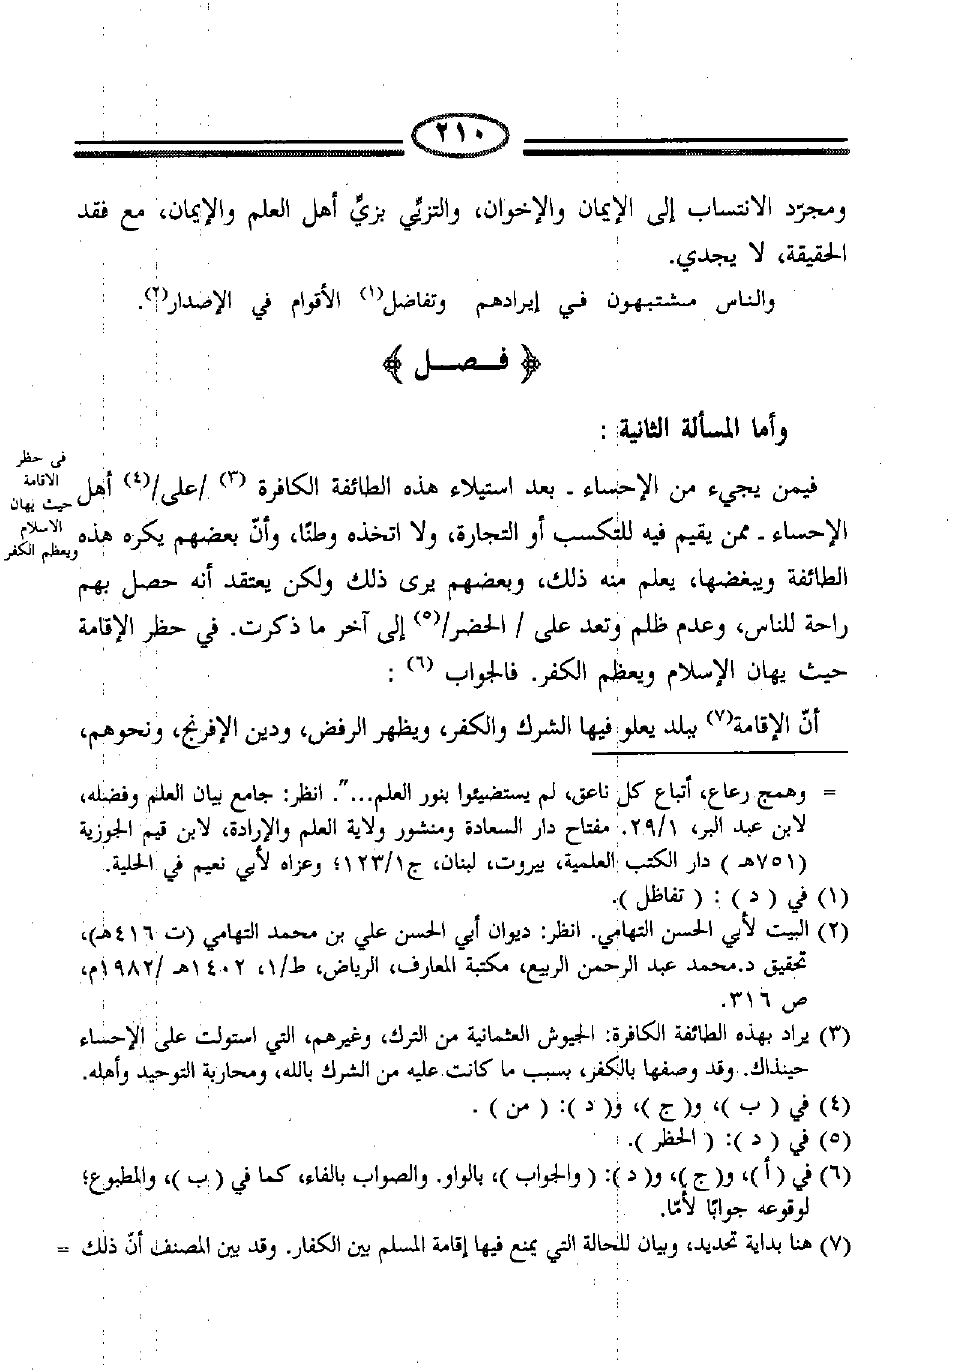 ٢١٠
ومجرّد الانتساب إلى الإيمان والإخوان، والتزيِّي بزيِّ أهل العلم والإيمان، مع فقد
الحقيقة، لا يجدي.
والناس مشتبهون في إيرادهم وتفاضل(١) الأقوام في الإصدار(٢).
﴿ فـــصـــل ﴾
وأما المسألة الثانية :
في حظر
الاقامة
حيث يهان
الاسلام
ويعظم الكفر
فيمن يجيء من الإحساء ـ بعد استيلاء هذه الطائفة الكافرة (٣) /على/(٤) أهل
الإحساء ـ ممن يقيم فيه للتكسب أو التجارة، ولا اتخذه وطنًا، وأنّ بعضهم يكره هذه
الطائفة ويبغضها، يعلم منه ذلك، وبعضهم يرى ذلك ولكن يعتقد أنه حصل بهم
راحة للناس، وعدم ظلم وتعد على / الحضر/(٥) إلى آخر ما ذكرت. في حظر الإقامة
حيث يهان الإسلام ويعظم الكفر. فالجواب (٦) :
أنّ الإقامة(٧) ببلد يعلو فيها الشرك والكفر، ويظهر الرفض، ودين الإفرنج، ونحوهم،
= وهمج رعاع، أتباع كل ناعق، لم يستضيئوا بنور العلم...". انظر: جامع بيان العلم وفضله،
لابن عبد البر، ٢٩/١. مفتاح دار السعادة ومنشور ولاية العلم والإرادة، لابن قيم الجوزية
(٧٥١هـ ) دار الكتب العلمية، بيروت، لبنان، ج١٢٣/١؛ وعزاه لأبي نعيم في الحلية.
(١) في ( د ) : ( تفاظل ).
(٢) البيت لأبي الحسن التهامي. انظر: ديوان أبي الحسن علي بن محمد التهامي (ت ٤١٦هـ)،
تحقيق د.محمد عبد الرحمن الربيع، مكتبة المعارف، الرياض، ط/١، ١٤٠٢هـ /١٩٨٢م،
ص ٣١٦.
(٣) يراد بهذه الطائفة الكافرة: الجيوش العثمانية من الترك، وغيرهم، التي استولت على الإحساء
حينذاك. وقد وصفها بالكفر، بسبب ما كانت عليه من الشرك بالله، ومحاربة التوحيد وأهله.
(٤) في ( ب )، و( ج )، و( د ): ( من ) .
(٥) في ( د ): ( الحظر ).
(٦) في ( أ )، و( ج )، و( د ): ( والجواب )، بالواو. والصواب بالفاء، كما في ( ب )، والمطبوع؛
لوقوعه جوابًا لأمّا.
(٧) هنا بداية تحديد، وبيان للحالة التي يمنع فيها إقامة المسلم بين الكفار. وقد بين المصنف أنّ ذلك =